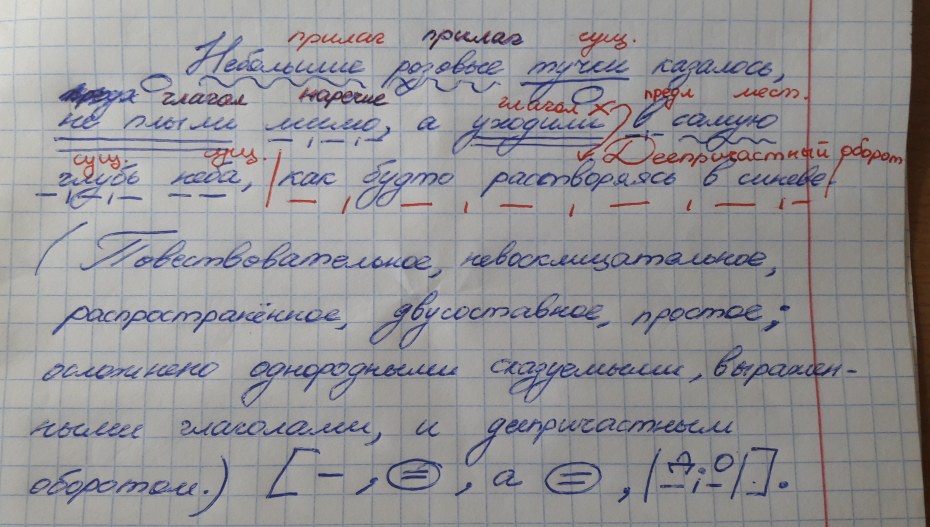 прилаг прилаг сущ.
Небольшие розовые тучки казалось,
глагол наречие глагол предл мест.
не плыли мимо, а уходили в самую
сущ. сущ. Деепричастный оборот
глубь неба, как будто растворяясь в синеве.
(Повествовательное, невосклицательное,
распространённое, двусоставное, простое;
осложнено однородными сказуемыми, выражен-
ными глаголами, и деепричастным
оборотом.) [–, =, а =, |Д.О|].